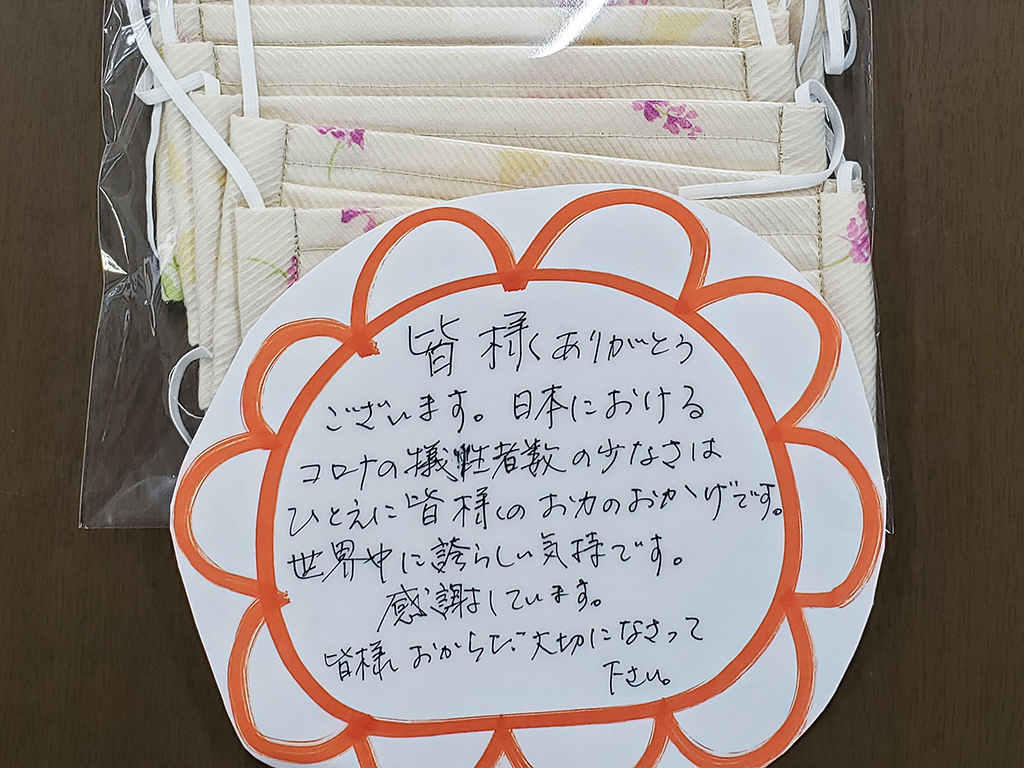 皆様くありがとう
ございます。日本における
コロナの犠牲者数の少なさは
ひとえに皆様のお力のおかげです。
世界中に誇らしい気持です。
感謝しています。
皆様、おからだ大切になさって
下さい。